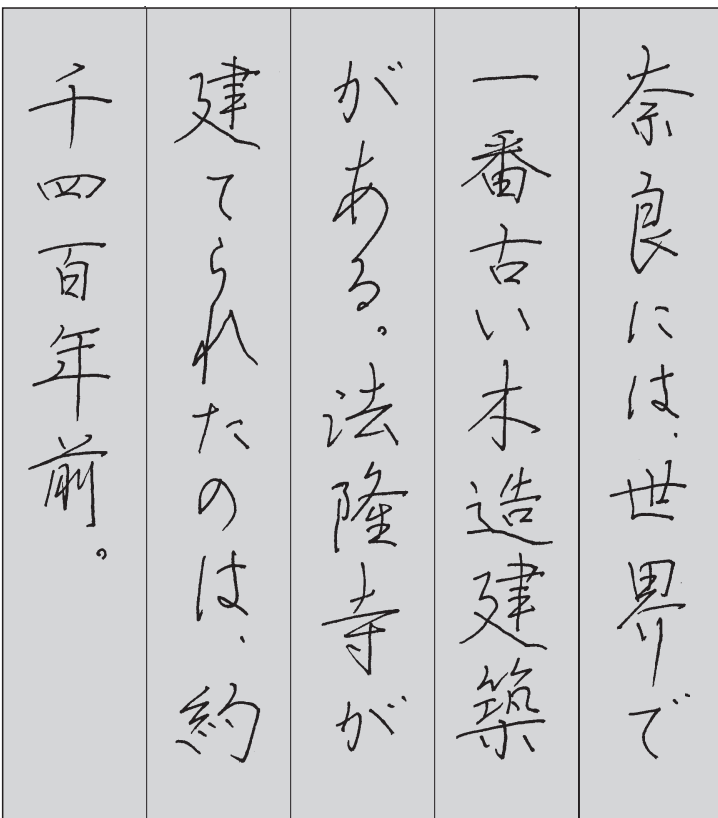 奈良には、世界で
一番古い木造建築
がある。法隆寺が
建てられたのは、約
千四百年前。